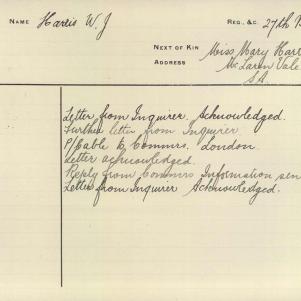 NAME Harris W. J
REG. &C. 27th B
NEXT OF KIN Miss Mary Harr
ADDRESS McLaren Vale
S.A.
Letter from Inquirer. Acknowledged.
Further letter from Inquirer
P/Cable to Commrs. London.
Letter acknowledged.
Reply from Commrs Information sen
Letter from Inquirer Acknowledged.